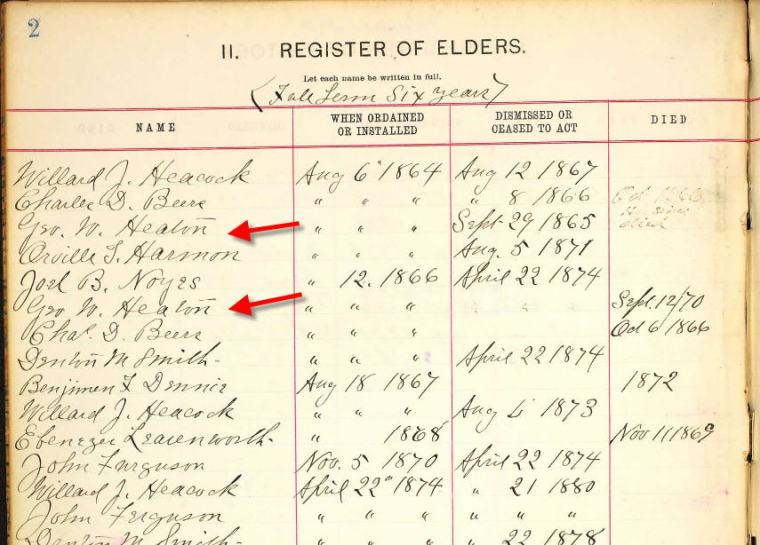 2
II. REGISTER OF ELDERS.
Let each name be written in full.
(Full Term Six Years)
NAME WHEN ORDAINED OR INSTALLED DISMISSED OR CEASED TO ACT DIED
Willard J. Heacock Aug 6 1864 Aug 12 1867
Charles D. Beers " " " " 8 1866 Oct
Geo. W. Heaton " " " Sept 29 1865
Orville S. Harmon " " " Aug. 5 1871
Joel B. Noyes " 12. 1866 April 22 1874
Geo W. Heaton " " " Sept. 12/70
Chas. D. Beers " " " Oct 6 1866
Denton M Smith- " " " April 22 1874
Benjimen F Dennie Aug 18 1867 1872
Willard J. Heacock " " " Aug 1873
Ebenezer Leavenworth- " 1868 Nov 11 1869
John Furguson Nov. 5 1870 April 22 1874
Willard J. Heacock April 22 1874 " 21 1880
John Ferguson " " " " " "
Denton M. Smith- " " " " 22 1878